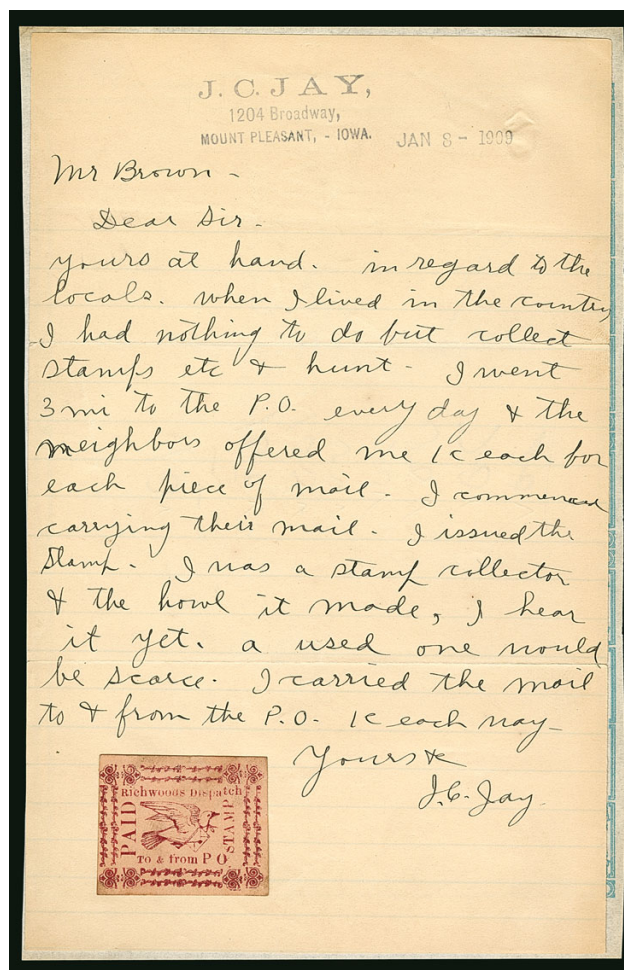 J. C. JAY,
1204 Broadway,
MOUNT PLEASANT, - IOWA. JAN 8 - 1909
Mr Brown -
Dear Sir.
yours at hand. in regard to the
locals. when I lived in the country
I had nothing to do but collect
stamps etc & hunt. I went
3 mi to the P.O. every day & the
neighbors offered me 1c each for
each piece of mail. I commenced
carrying their mail. I issued the
Stamp. I was a stamp collector
& the howl it made, I hear
it yet. a used one would
be scarce. I carried the mail
to & from the P.O. 1c each way
Yours &
J.C. Jay.
Richwoods Dispatch
PAID
STAMP
To & from P O